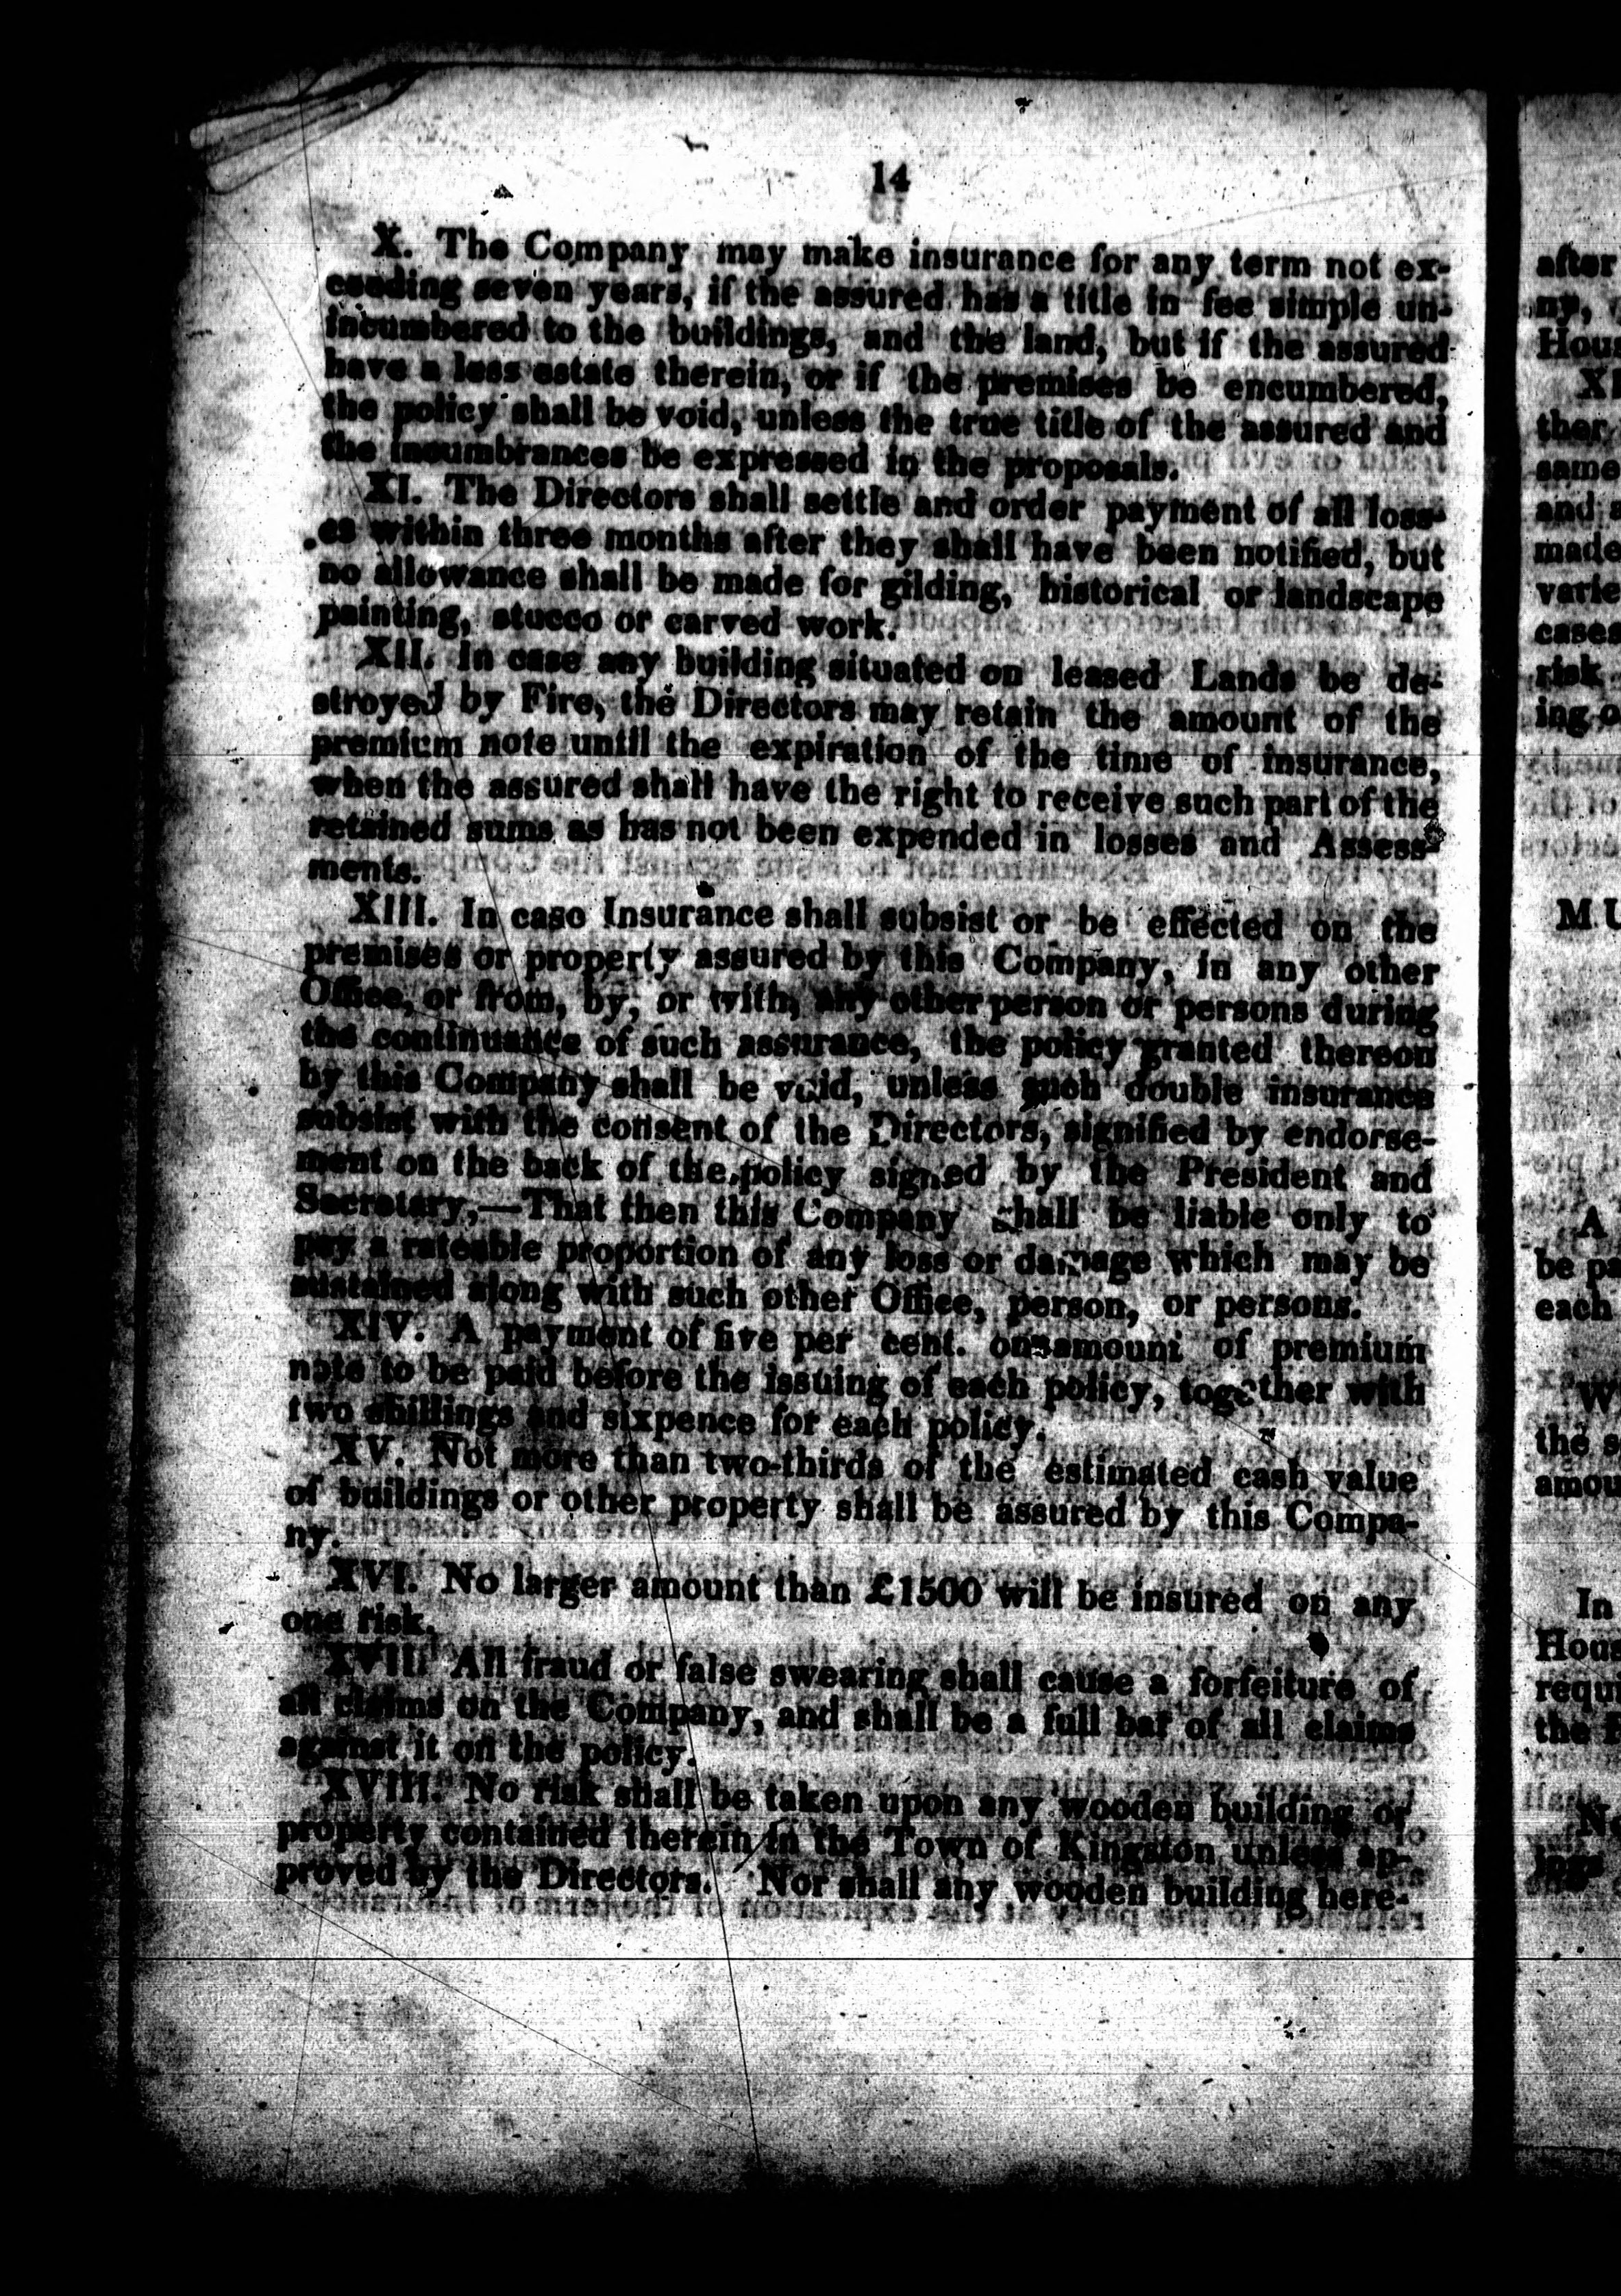 14
X. The Company may make insurance for any term not ex-
ceeding seven years, if the assured has a title in fee simple un-
incumbered to the buildings, and the land, but if the assured
have a less estate therein, or if the premises be encumbered,
the policy shall be void, unless the true title of the assured and
the incumbrances be expressed in the proposals.
XI. The Directors shall settle and order payment of all loss-
es within three months after they shall have been notified, but
no allowance shall be made for gilding, historical or landscape
painting, stucco or carved work.
XII. In case any building situated on leased Lands be de-
stroyed by Fire, the Directors may retain the amount of the
premium note until the expiration of the time of insurance,
when the assured shall have the right to receive such part of the
retained sums as has not been expended in losses and Assess-
ments.
XIII. In case Insurance shall subsist or be effected on the
premises or property assured by this Company, in any other
Office, or from, by, or with, any other person or persons during
the continuance of such assurance, the policy granted thereon
by this Company shall be void, unless such double insurance
subsist with the consent of the Directors, signified by endorse-
ment on the back of the policy signed by the President and
Secretary,—That then this Company shall be liable only to
pay a rateable proportion of any loss or damage which may be
sustained along with such other Office, person, or persons.
XIV. A payment of five per cent. on amount of premium
note to be paid before the issuing of each policy, together with
two shillings and sixpence for each policy.
XV. Not more than two-thirds of the estimated cash value
of buildings or other property shall be assured by this Compa-
ny.
XVI. No larger amount than £1500 will be insured on any
one risk.
XVII. All fraud or false swearing shall cause a forfeiture of
all claims on the Company, and shall be a full bar of all claims
against it on the policy.
XVIII. No risk shall be taken upon any wooden building or
property contained therein in the Town of Kingston unless ap-
proved by the Directors. Nor shall any wooden building here-
after
ny,
ther
same
and
made
cases
risk
M U
A
each
the
In
the